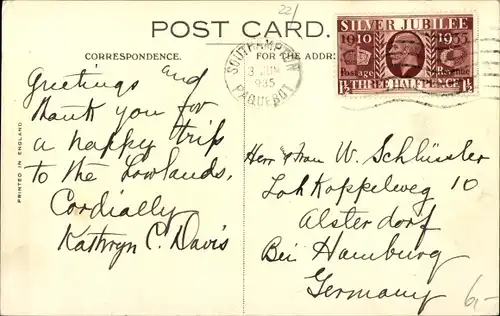 22/
POST CARD.
CORRESPONDENCE.
FOR THE ADDR
SOUTHAMPTON
3 JUN
1935
PAQUEBOT
SILVER JUBILEE
1910 1935
Postage Revenue
1½ THREE HALFPENCE 1½
Greetings and
thank you for
a happy trip
to the Lowlands.
Cordially
Kathryn C. Davis
PRINTED IN ENGLAND
Herr & Frau W. Schlüssler
Loh Koppelweg 10
Alsterdorf
Bei Hamburg
Germany
6,-